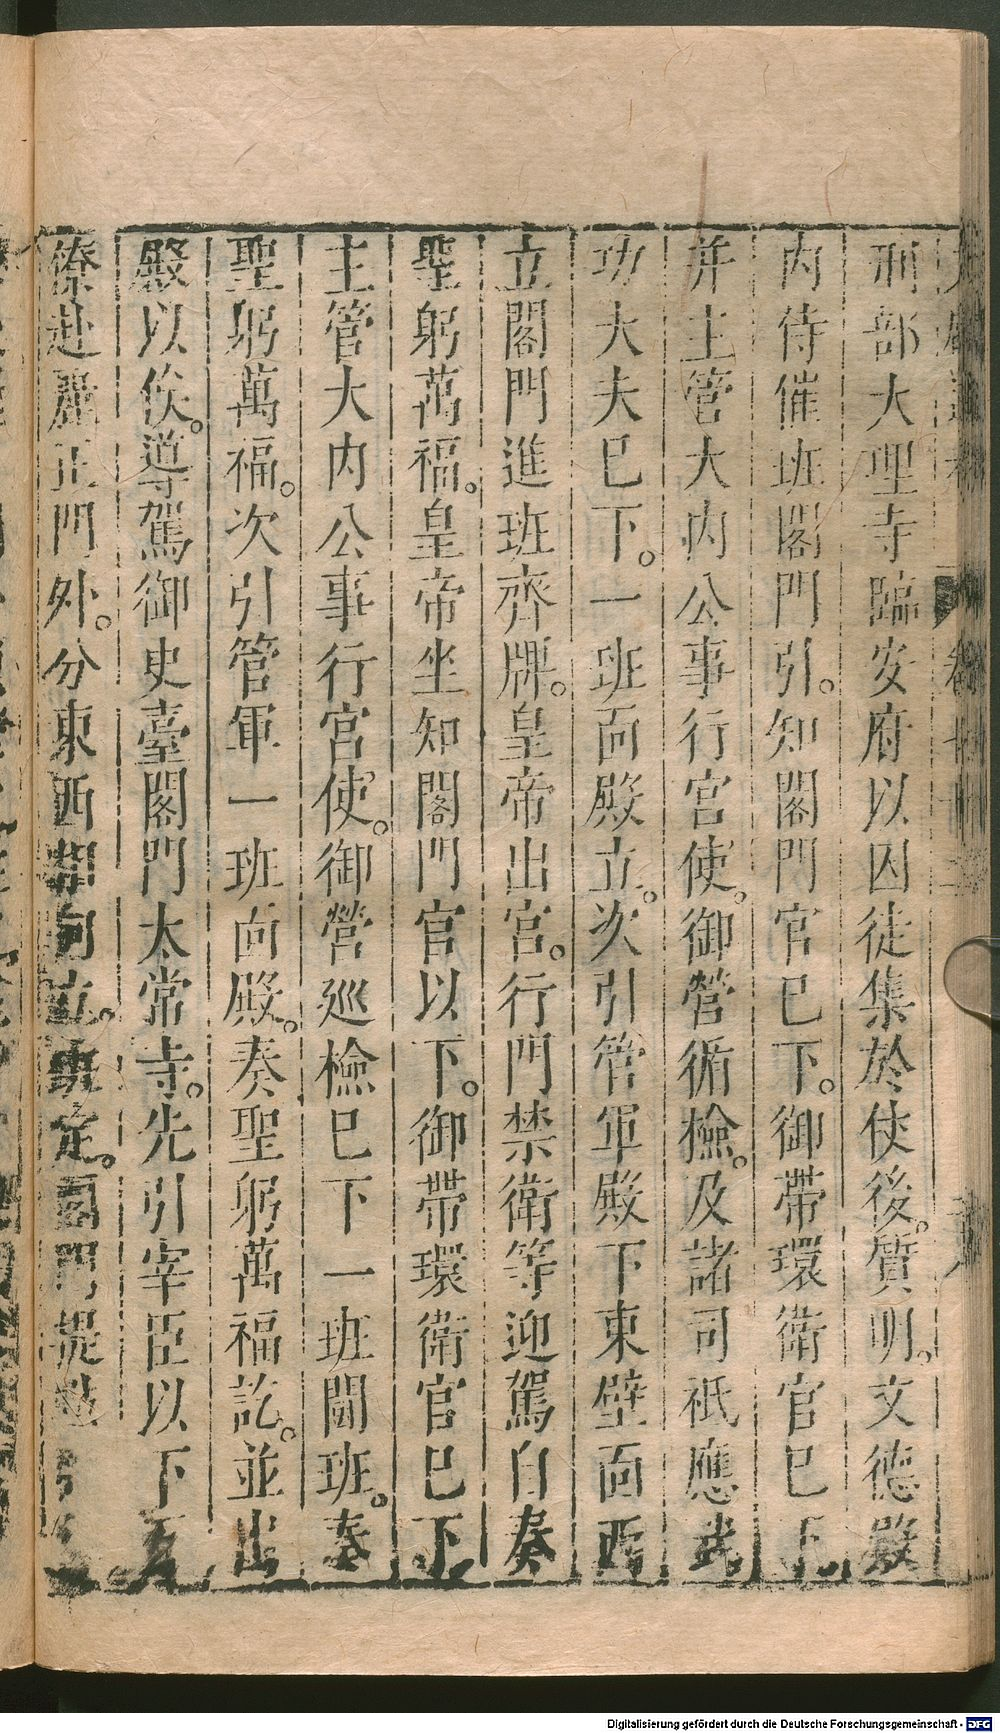 刑部大理寺臨安府以囚徒集於仗後。質明。文德殿
內侍催班閤門引。知閤門官已下。御帶環衛官已下
并主管大內公事行宮使。御營循檢。及諸司祇應武
功大夫已下。一班面殿立。次引管軍殿下東壁面西
立閤門進班齊牌。皇帝出宮。行門禁衛等迎駕自奏
聖躬萬福。皇帝坐知閤門官以下。御帶環衛官已下
主管大內公事行宮使。御營巡檢已下一班閤班。奏
聖躬萬福。次引管軍一班面殿。奏聖躬萬福訖。並出
殿以俟。導駕御史臺閤門太常寺。先引宰臣以下百
僚赴麗正門外。分東西相向立。班定。閤門提點
Digitalisierung gefördert durch die Deutsche Forschungsgemeinschaft - DFG